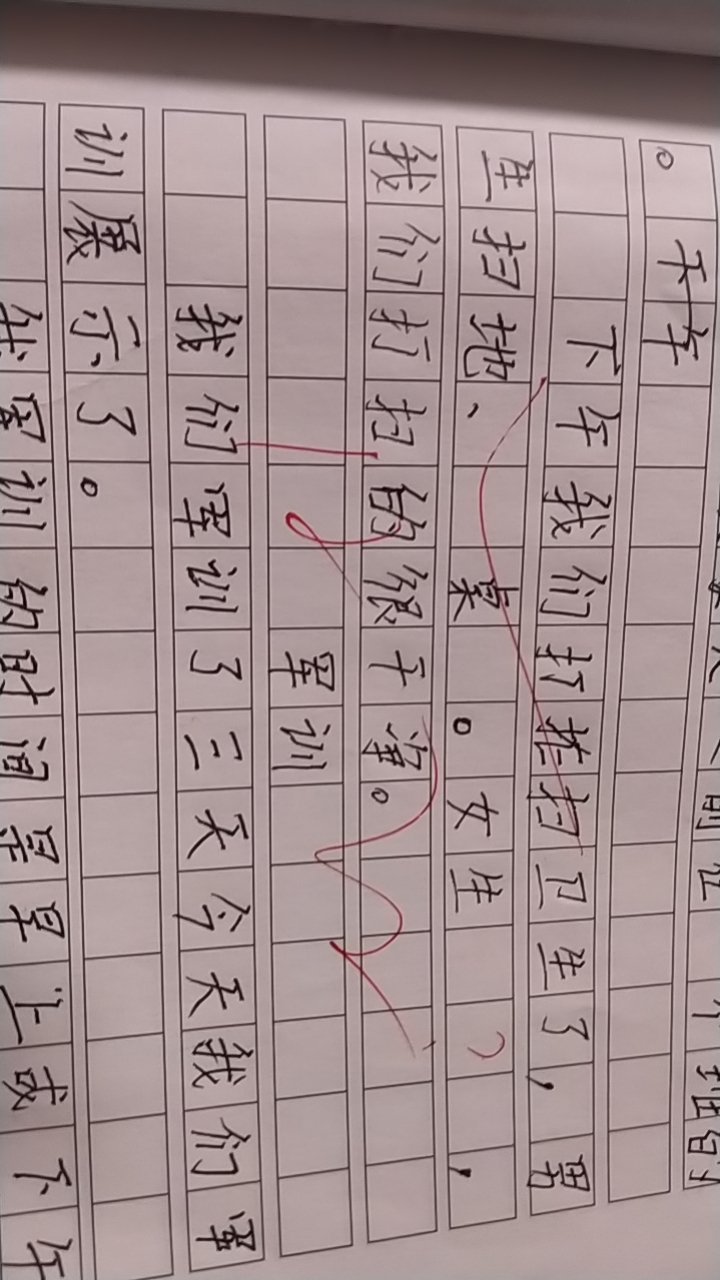 。 下午
下午我们打扫卫生了，男
生扫地、 桌 。女生 ，
我们打扫的很干净。
军训
我们军训了三天今天我们军
训展示了。
我军训的时间是早上或下午